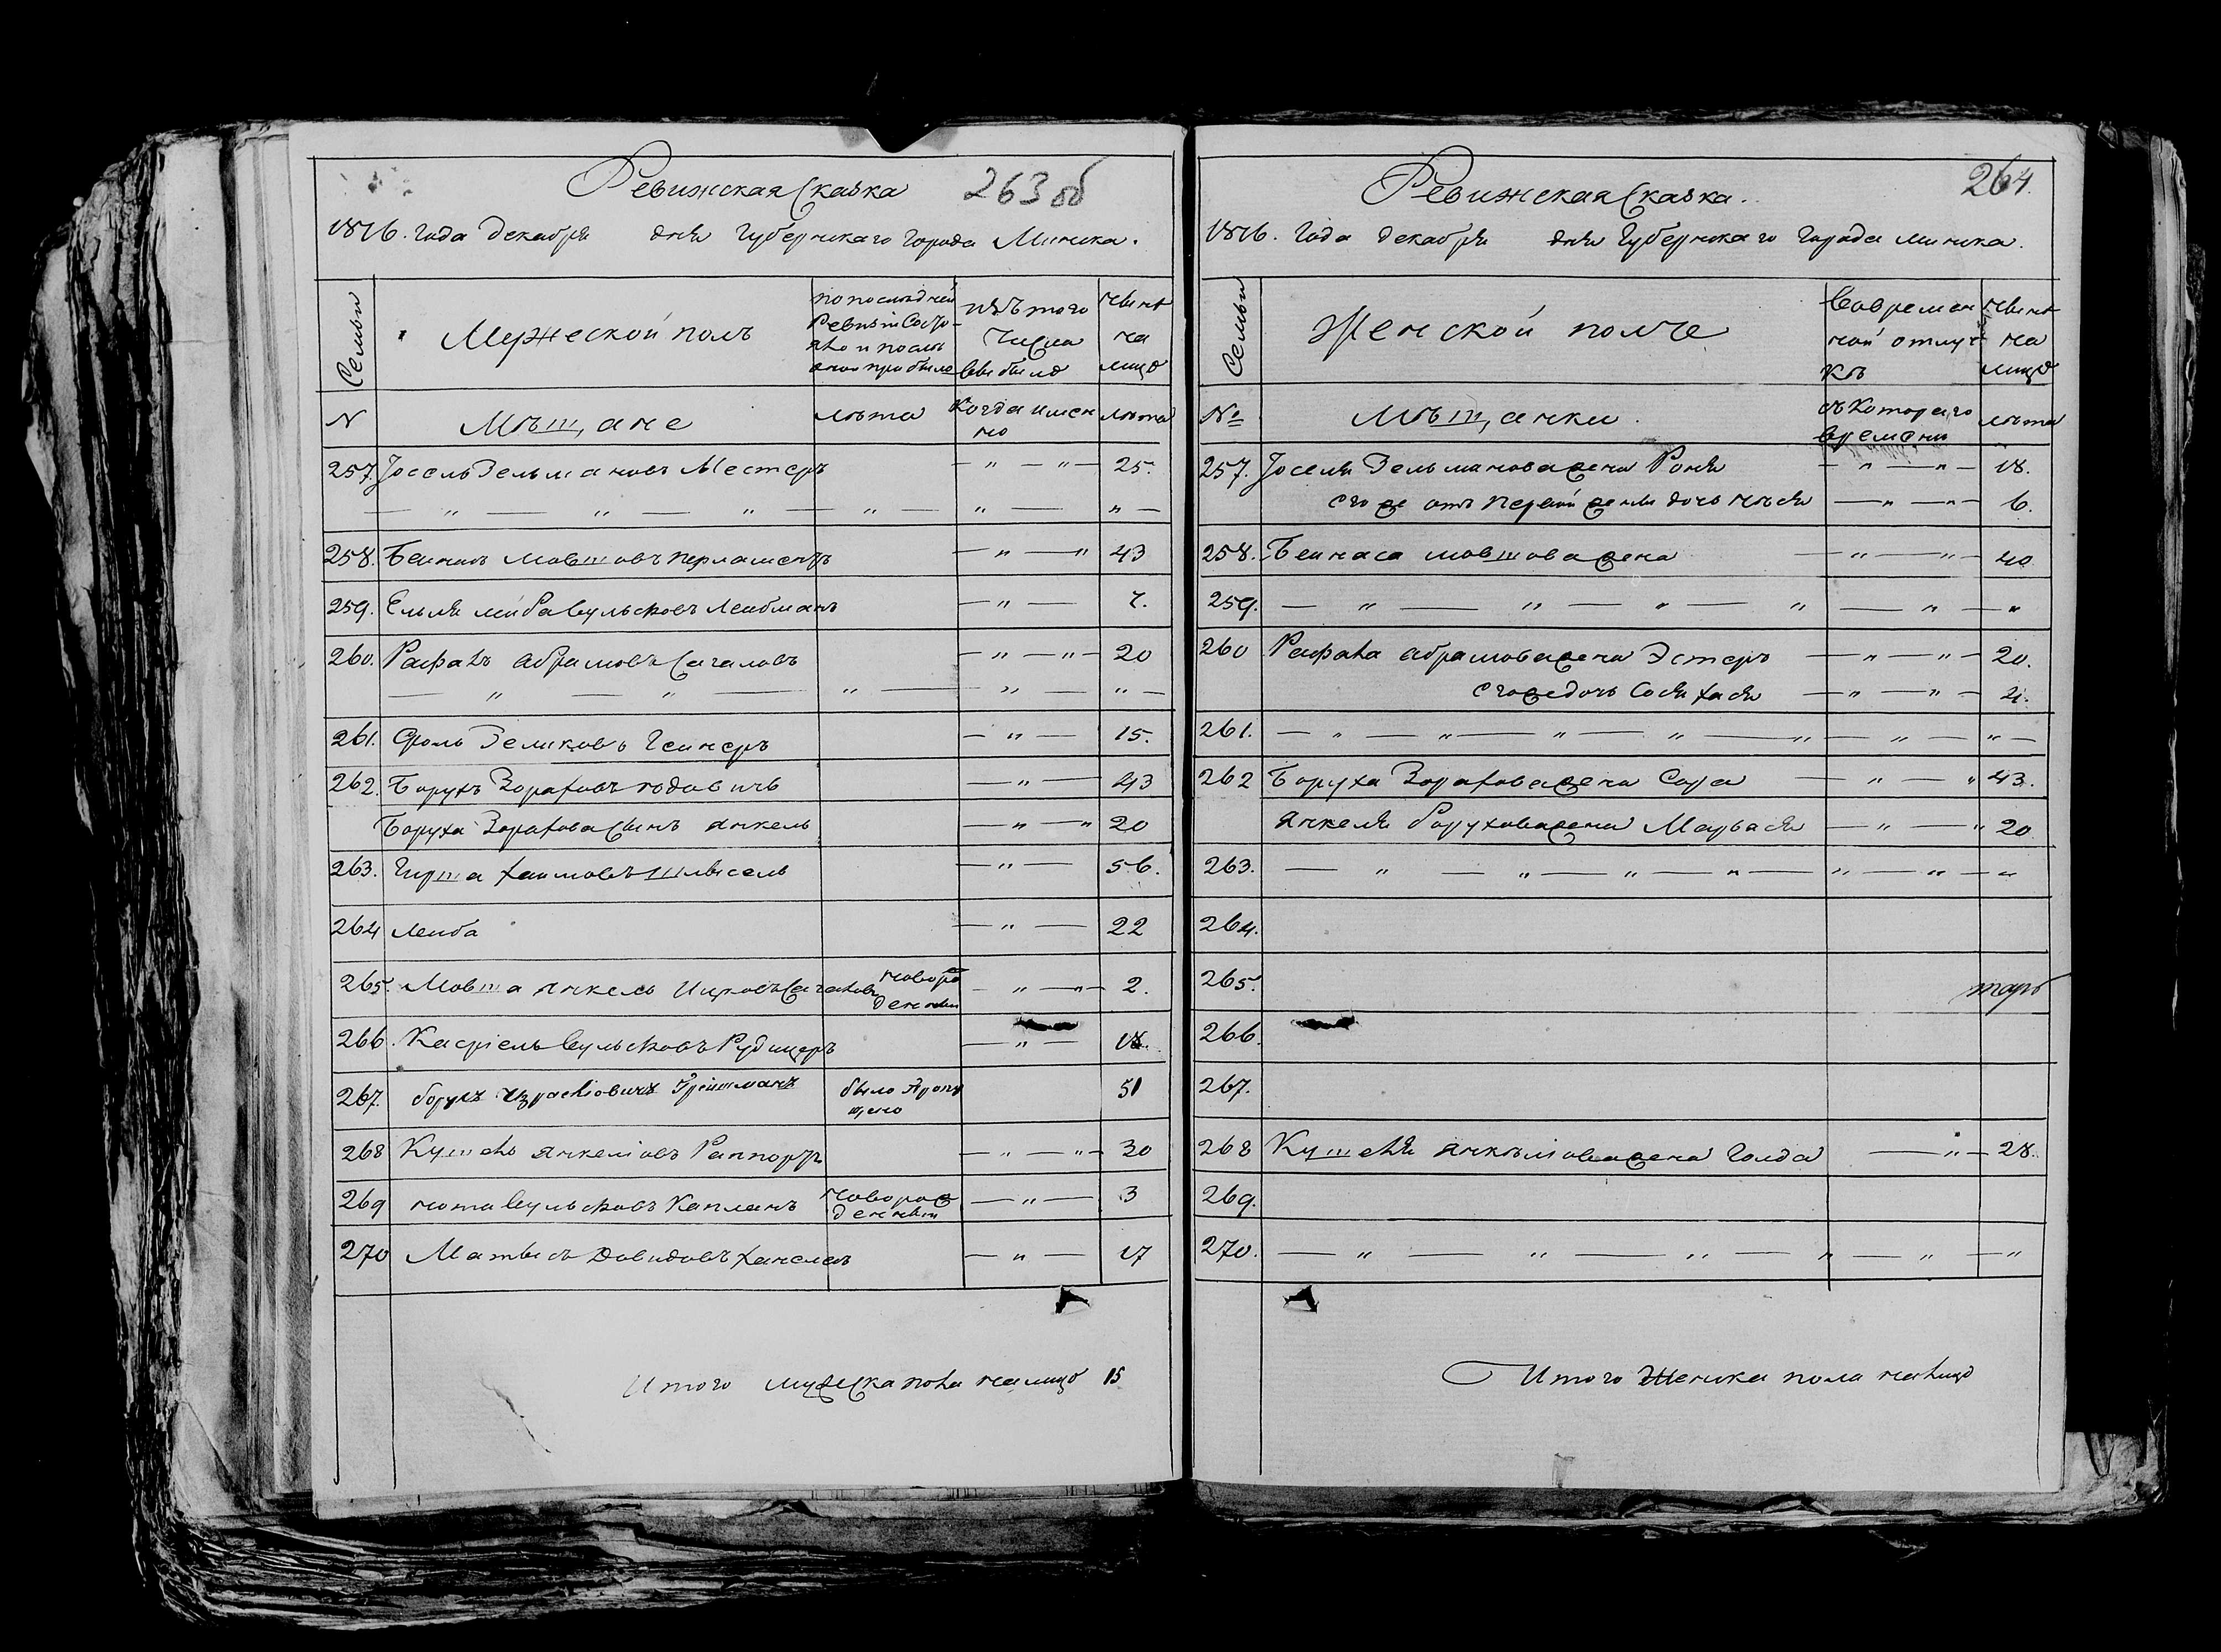 Ревижская Сказка 263 об
1816. года декабря дня Губернскаго Города Минска.
Семьи
Мужеской полъ
по последней
Ревизіи Состо-
яло и после
оной прибыло
изъ того
Числа
выбыло
Ныне
на
лицо
N
Мѣщане
лѣта
Когда имен
но
лѣта
257. Іосель Зельмановъ Местеръ — " — " — 25.
— " — " — " — " — " — " —
258. Беинасъ Мовшовъ Перламентръ — " — " 43
259. Ельля Лейба Вульфовъ Леибманъ — " — 7.
260. Рафалъ Абрамовъ Сагаловъ — " — " — 20
— " — " — " — " — " —
261. Фроль Зеликовъ Геинеръ — " — 15.
262. Борухъ Зораховъ Юдовичъ — " — 43
Боруха Зорахова Сынъ Янкель — " — " 20
263. Гирша Хаимовъ Шмысель — " — 56.
264 Леиба — " — 22
265. Мовша Янкель Ицковъ Сагаловъ новорож
денныи — " — " — 2.
266. Касріель Вульфовъ Рудицеръ — " — 18.
267. борухъ Израеліовичъ Грейшманъ было Пропу
щено 51
268 Кушель Янкеліовъ Раппортъ — " — " — 30
269 Нота Вульфовъ Капланъ Новорож
денныи — " — 3
270 Матысъ Довидовъ Ханелесъ — " — 17
Итого мужска пола налицо 15
Ревижская Сказка. 264.
1816. Года декабря дня Губернскаго Города Минска.
Семьи
Женской полъ
Вовремен
ной отлуч
къ
Ныне
на
лицо
№
Мѣщанки.
съ Котораго
времени
лѣта
257. Іоселя Зельманова жена Роня — " — " — 18.
его же отъ Первой жены дочь Нѣся — " — " — 6.
258. Беинаса Мовшова жена — " — " — 40
259. — " — " — " — " — " — "
260 Рафала Абрамова жена Эстеръ — " — " — 20.
его же дочь Сося Хася — " — " — 4.
261. — " — " — " — " — " — " — " —
262 Боруха Зорахова жена Сора — " — " 43.
Янкеля Борухова жена Марьася — " — " 20
263. — " — " — " — " — " — " — "
264.
265.
266.
267.
268 Кушеля Янкеліова жена Голда — " — 28.
269.
270. — " — " — " — " — " — "
Итого Женска пола налицо